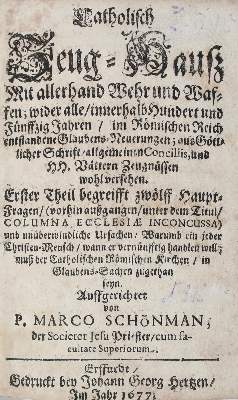 Catholisch
Zeug-Hauß
Mit allerhand Wehr und Waf-
fen; wider alle/innerhalb Hundert und
Fünffzig Jahren / im Römischen Reich
entstandene Glaubens-Neuerungen; aus Gött-
licher Schrifft/allgemeinen Conciliis, und
HH. Vättern Zeugnüssen
wohl versehen.
Erster Theil begreifft zwölff Haupt-
Fragen/ (vorhin außgangen/unter dem Titul/
COLUMNA ECCLESIÆ INCONCUSSA)
und unüberwindliche Ursachen/ Warumb ein jeder
Christen-Mensch/ wann er vernünfftig handlen will;
muß der Catholischen Römischen Kircher/ in
Glaubens-Sachen zugethan
seyn.
Auffgerichtet
von
P. MARCO SCHÖNMAN;
der Societet Jesu Priester/cum fa-
cultate Superiorum.
Erffurdt/
Gedruckt bey Johann Georg Hertzen/
Im Jahr 1677.